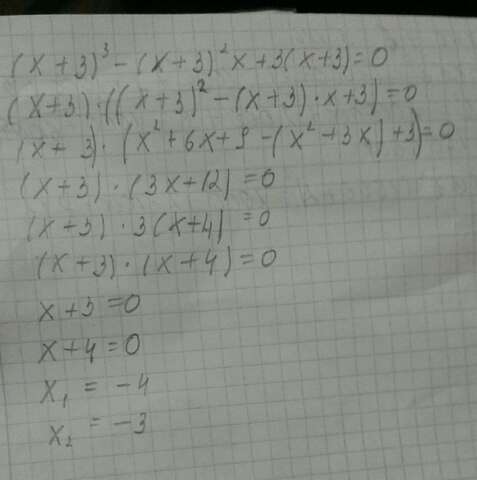 (x+3)³ - (x+3)²x + 3(x+3) = 0
(x+3)·((x+3)² - (x+3)·x+3) = 0
(x+3)·(x²+6x+9-(x²+3x)+3) = 0
(x+3)·(3x+12) = 0
(x+3)·3(x+4) = 0
(x+3)·(x+4) = 0
x+3=0
x+4=0
x₁ = -4
x₂ = -3